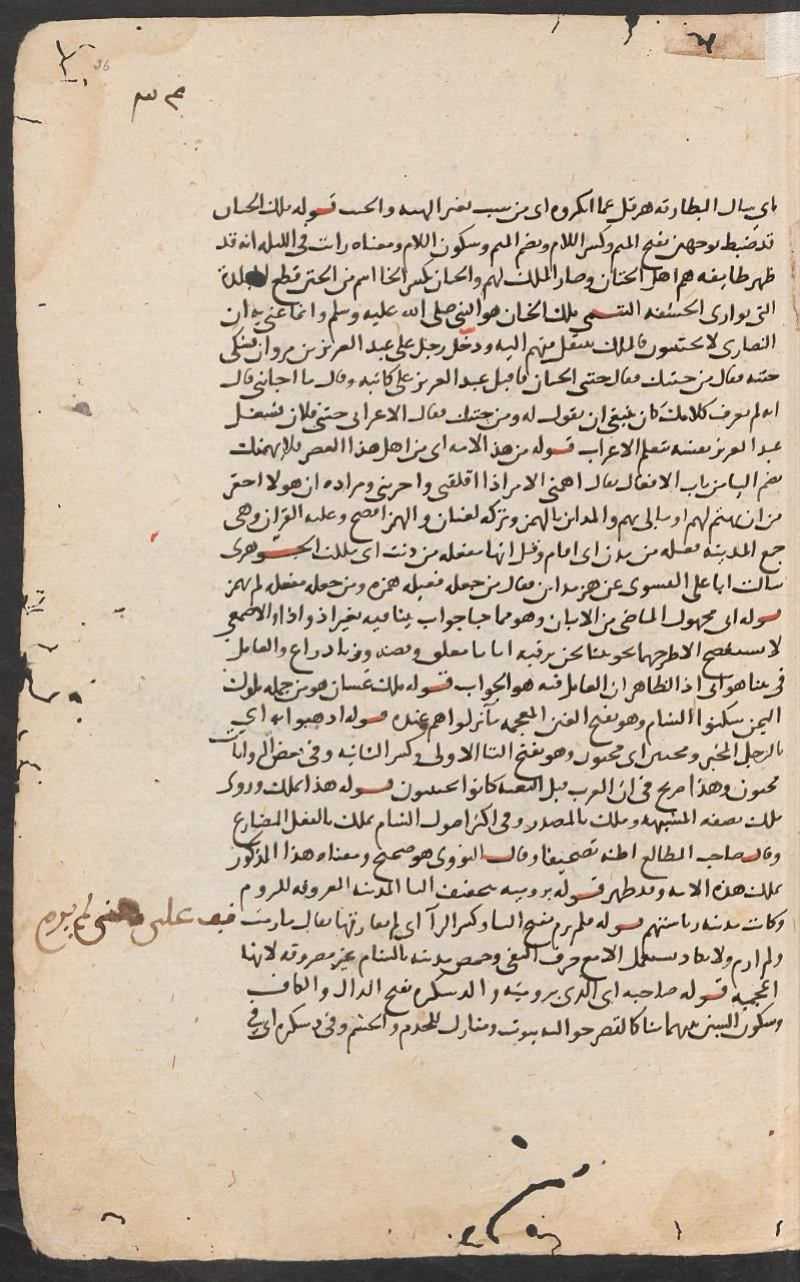 اى سال البطارقه هرقل عما انكروه اى من سبب تغير الهيه والحب قوله ملك الختان
قد ضبط بوجهين بفتح الميم وكسر اللام وبضم الميم وسكون اللام ومعناه رايت فى الليله انه قد
ظهر طايفه هم اهل الختان وصار الملك لهم والختان بكسر الخا اسم من الختن قطع الجلدة
التى توارى الحشفه التيمى ملك الختان هو النبى صلى الله عليه وسلم وانما عنى به ان
النصارى لا يختتنون فالملك ينتقل منهم اليه ودخل رجل على عبد العزيز بن مروان فشكى
ختنه فقال من ختنك فقال ختنى الختان فاقبل عبد العزيز على كاتبه وقال ما اجابنى قال
انه لم يعرف كلامك كان ينبغى ان يقول له ومن ختنك فقال الاعرابى ختنى فلان فشغل
عبد العزيز نفسه بتعلم الاعراب قوله من هذه الامه اى من اهل هذا العصر فلا يهمنك
بضم اليا من باب الافعال يقال اهمنى الامر اذا اقلقنى واحزننى ومراده ان هولا احقر
من ان يهتم لهم او يبالى بهم والمداين بالهمز وتركه لغتان والهمز افصح وعليه القران وهى
جمع المدينه فعيله من مدن اى اقام وقيل انها مفعله من دنت اى ملكت الجوهرى
سالت ابا على الفسوى عن همز مداين فقال من جعله فعيله همزه ومن جعله مفعله لم يهمز
قوله اتى مجهول الماضى من الاتيان وهو مما جا جواب بينا فيه بغير اذ واذا والاصمعى
لا يستفصح الا طرحهما نحو بينا نحن نرقبه اتانا معلق وفضه وزناد راع والعامل
فى بينا هو اتى اذ الظاهر ان العامل فيه هو الجواب قوله ملك غسان هو من جمله ملوك
اليمن سكنوا الشام وهو بفتح الغين المعجمه ما نزلوا هم عنده قوله اذهبوا به اى
بالرجل المخبر ومختتن اى مختون وهو بفتح التا الاولى وكسر الثانيه وفى بعض الروايات
مختون وهذا صريح فى ان العرب قبل البعثه كانوا يختتنون قوله هذا يملك وروى
ملك بصفه المشبهه وملك بالمصدر وفى اكثر اصول الشام يملك بالفعل المضارع
وقال صاحب المطالع اظنه تصحيفا وقال النووى هو صحيح ومعناه هذا المذكور
يملك هذه الامه وقد ظهر قوله بروميه بتخفيف اليا المدينه المعروفه للروم
وكانت مدينه رياستهم قوله فلم يرم بفتح اليا وكسر الرا اى لم يفارقها يقال ما رمت
قف على معنى لم يرم
ولم ارم ولا يكاد يستعمل الا مع حرف النفى وحمص مدينه بالشام غير مصروفه لانها
اعجميه قوله صاحبه اى الذى بروميه والدسكره بفتح الدال والكاف
وسكون السين بينهما بنا كالقصر حواليه بيوت ومنازل للخدم والحشم وفى دسكره اى فى